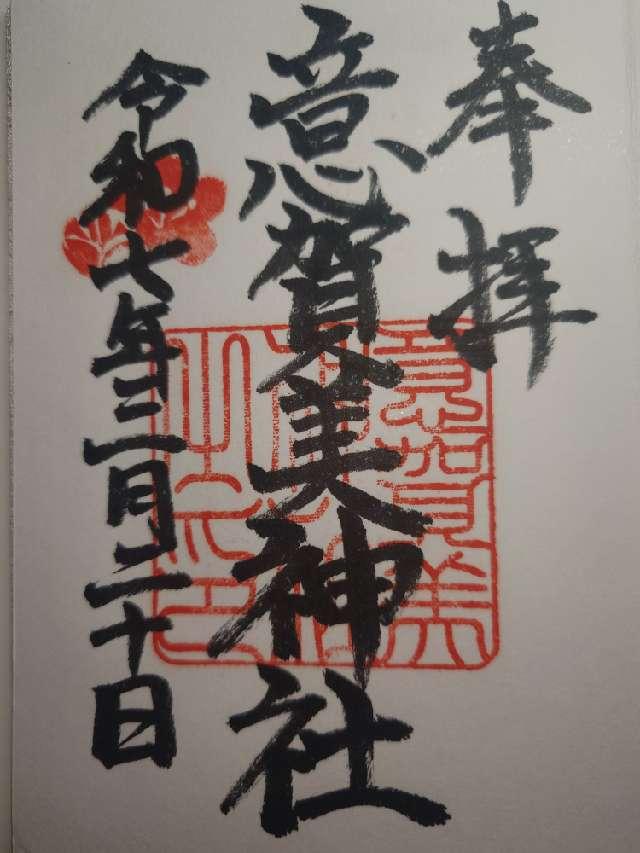 奉拝
意賀美神社
令和七年三月二十日